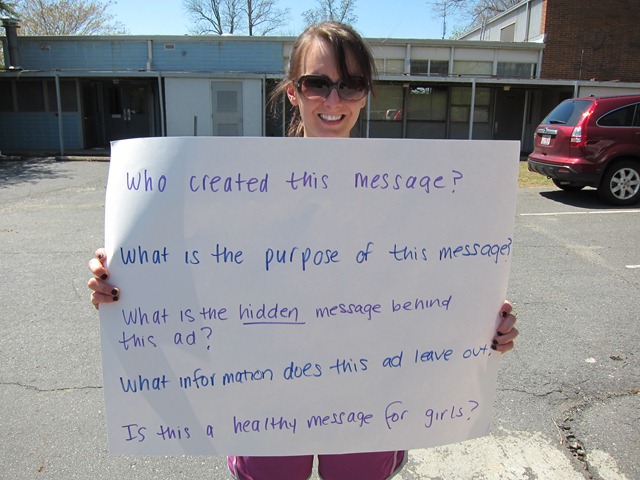 Who created this message?
What is the purpose of this message?
What is the hidden message behind
this ad?
What information does this ad leave out?
Is this a healthy message for girls?